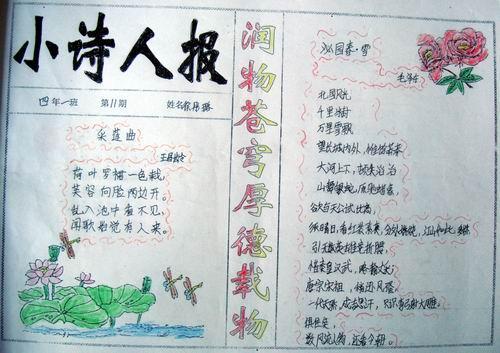 小诗人报
四年一班 第11期 姓名徐
采莲曲
王昌龄
荷叶罗裙一色裁,
芙蓉向脸两边开。
乱入池中看不见,
闻歌始觉有人来。
润物苍穹厚德载物
沁园春·雪
毛泽东
北国风光
千里冰封
万里雪飘
望长城内外,惟余莽莽
大河上下,顿失滔滔
山舞银蛇,原驰蜡象,
欲与天公试比高,
须晴日,看红装素裹,分外妖娆,江山如此多娇
引无数英雄竞折腰,
惜秦皇汉武,略输文采
唐宗宋祖,稍逊风骚
一代天骄,成吉思汗,只识弯弓射大雕,
俱往矣,
数风流人物,还看今朝。